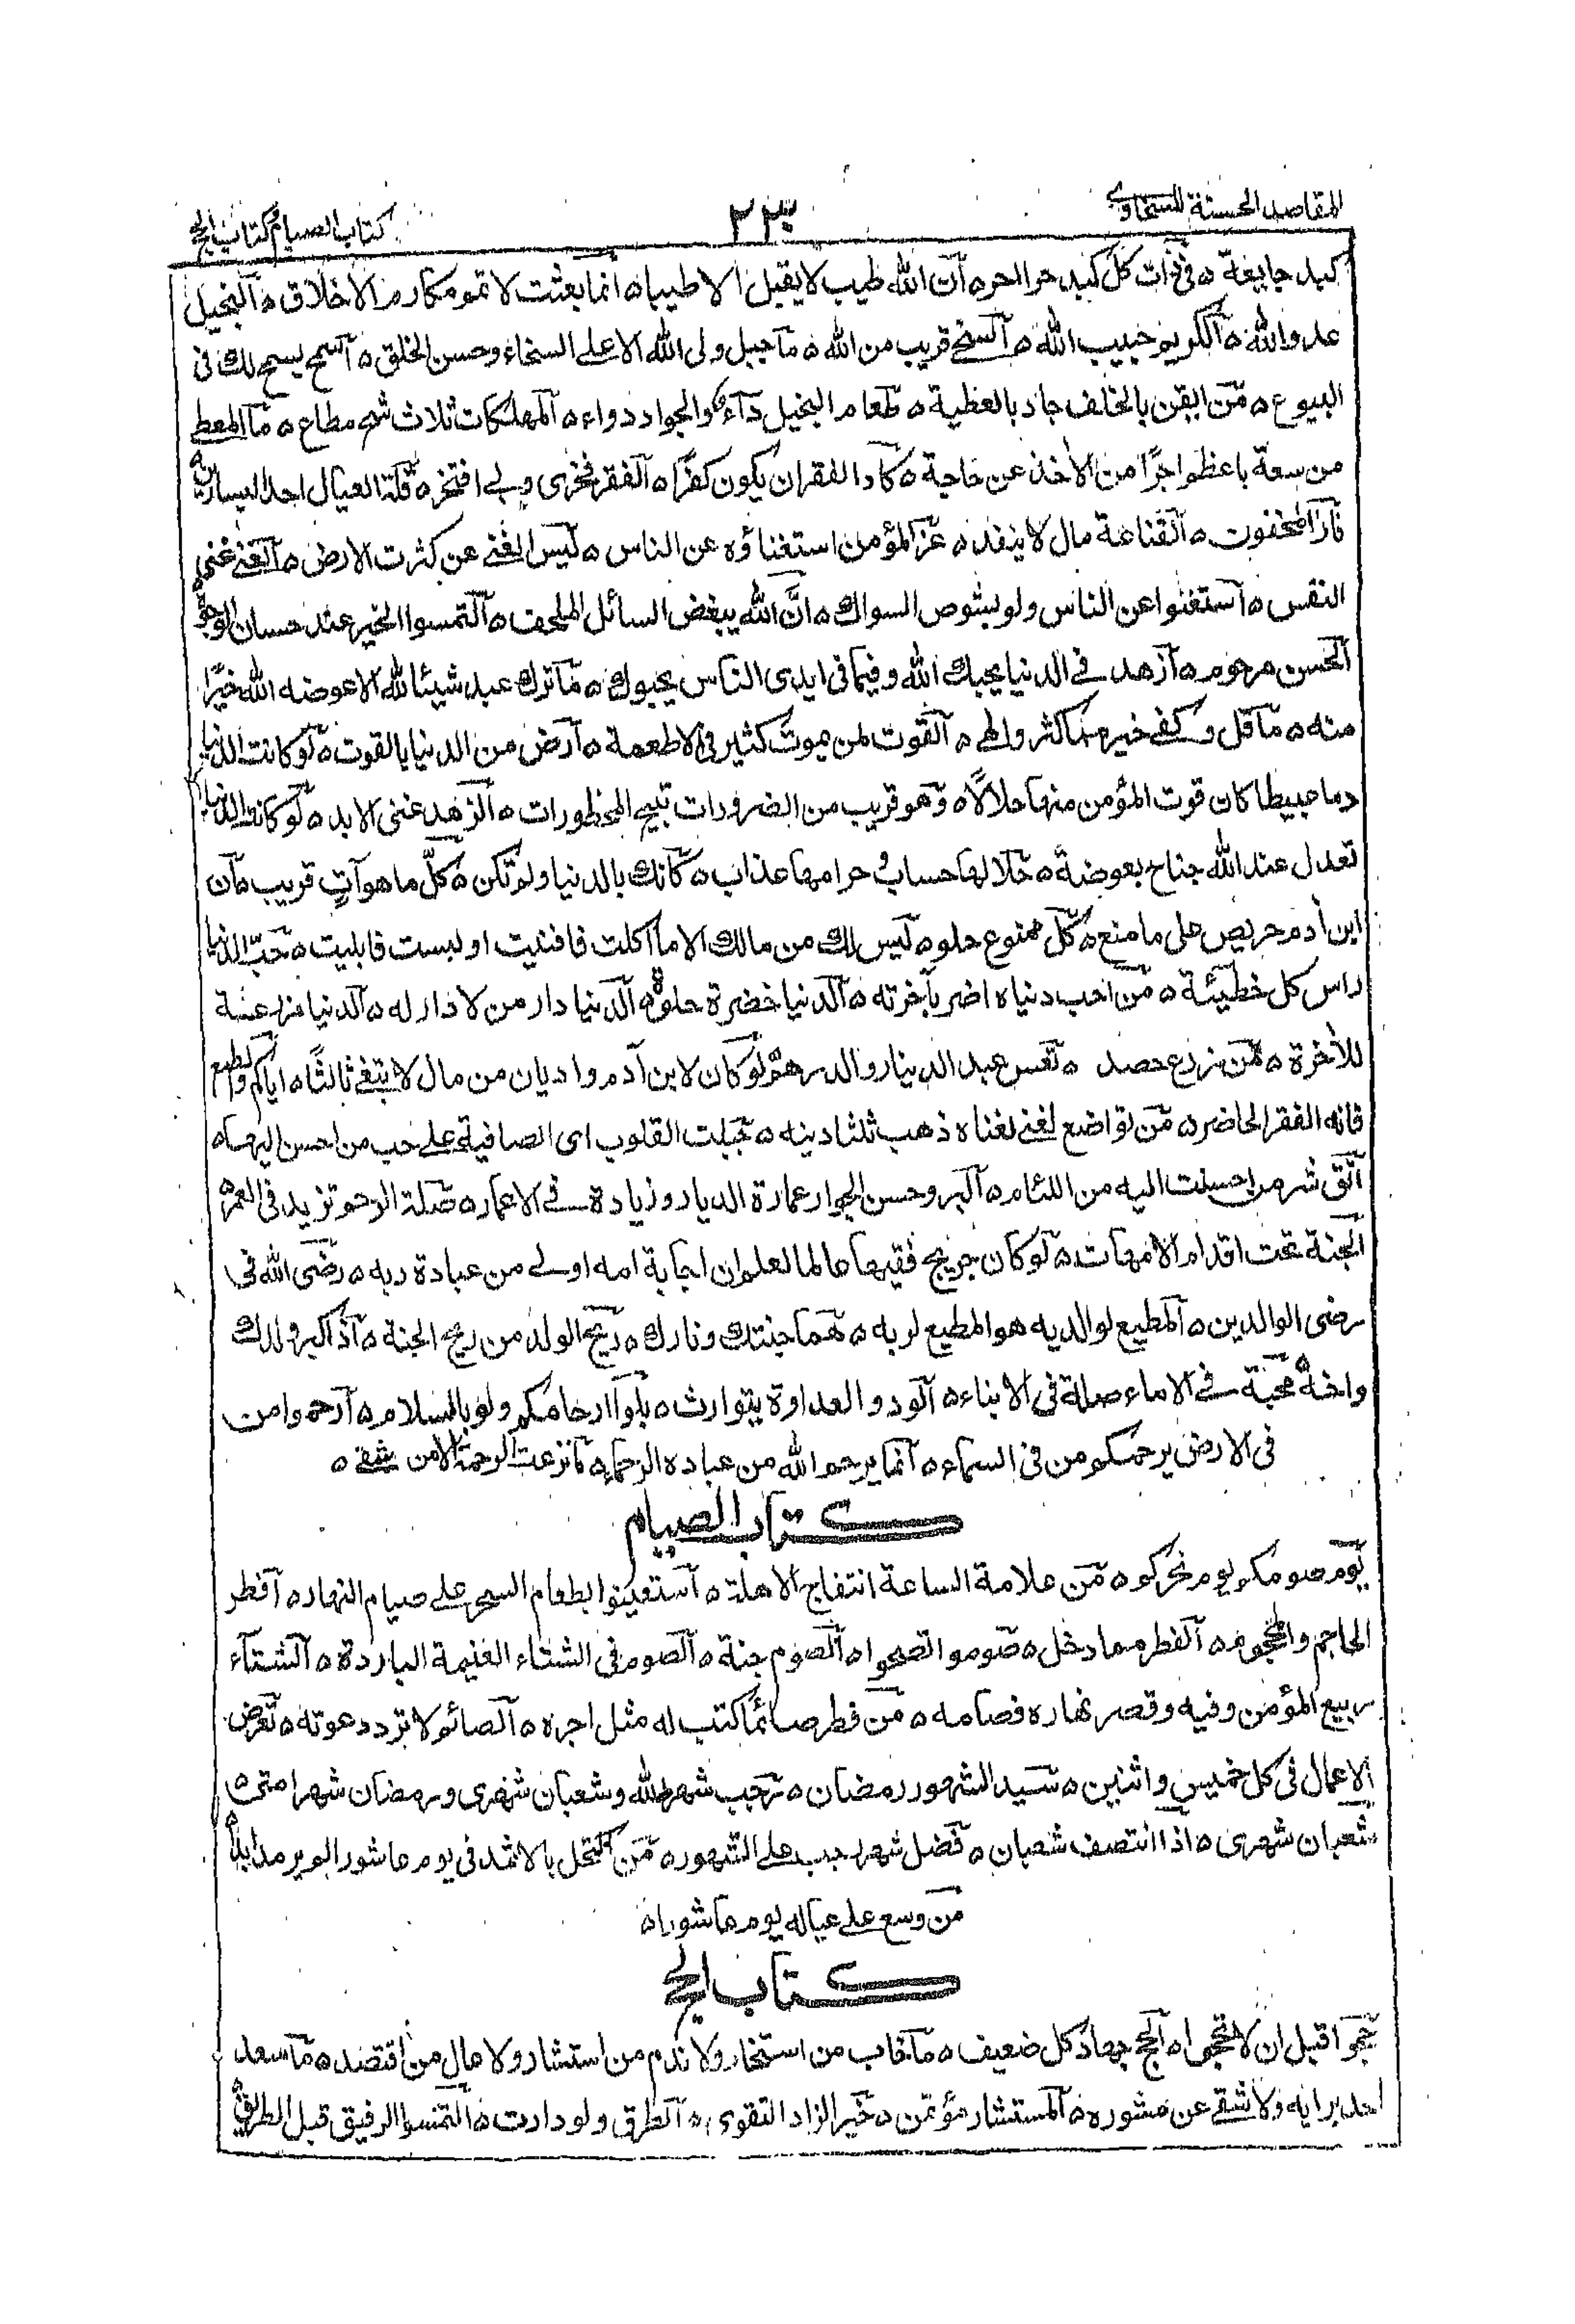 المقاصد الحسنة للسخاوى ٢٣٠ كتاب الصيام كتاب الحج
كبد جايعة ٥ فى ذات كل كبد حر الحر ٥ ان الله طيب لا يقبل الا طيبا ٥ انما بعثت لاتمم مكارم الاخلاق ٥ البخيل
عدو الله ٥ الكريم حبيب الله ٥ السخى قريب من الله ٥ ما جبل ولى الله الا على السخاء وحسن الخلق ٥ اسمح يسمح لك فى
البيوع ٥ من ايقن بالخلف جاد بالعطية ٥ طعام البخيل داء والجواد دواء ٥ المهلكات ثلاث شح مطاع ٥ ما المعطى
من سعة باعظم اجرًا من الأخذ عن حاجة ٥ كاد الفقر ان يكون كفرًا ٥ الفقر فخرى وبى افتخر ٥ قلة العيال احد اليسارين ٥
فاز المخفون ٥ القناعة مال لا ينفد ٥ عز المؤمن استغناؤه عن الناس ٥ ليس الغنى عن كثرت الارض ٥ الغنى غنى
النفس ٥ استغنوا عن الناس ولو بشوص السواك ٥ انَّ الله يبغض السائل الملحف ٥ التمسوا الخير عند حسان الوجوه
الحسن مرحوم ٥ ازهد فى الدنيا يحبك الله وفيما فى ايدى الناس يحبوك ٥ ما ترك عبد شيئا لله الا عوضه الله خيرًا
منه ٥ ما قل وكفى خير مما كثر والهى ٥ القوت لمن يموت كثير فى الاطعمة ٥ ارض من الدنيا بالقوت ٥ لو كانت الدنيا
دما عبيطا كان قوت المؤمن منها حلالًا ٥ وهو قريب من الضرورات تبيح المحظورات ٥ الزهد غنى الابد ٥ لو كانت الدنيا
تعدل عند الله جناح بعوضة ٥ حلالها حساب وحرامها عذاب ٥ كانك بالدنيا ولم تكن ٥ كلّ ما هو آتٍ قريب ٥ ان
ابن أدم حريص على ما منع ٥ كل ممنوع حلو ٥ ليس لك من مالك الا ما اكلت فافنيت او لبست فابليت ٥ حبّ الدنيا
راس كل خطيئة ٥ من احب دنياه اضر بآخرته ٥ الدنيا خضرة حلوة ٥ الدنيا دار من لا دار له ٥ الدنيا مزرعة
للأخرة ٥ من زرع حصد ٥ تعس عبد الدينار والدرهم ٥ لو كان لابن آدم واديان من مال لابتغى ثالثًا ٥ اياكم والطمع
فانه الفقر الحاضر ٥ من تواضع لغنى لغناه ذهب ثلثا دينه ٥ جبلت القلوب اى الصافية على حب من احسن اليها ٥
اتق شر من احسنت اليه من اللئام ٥ البر وحسن الجوار عمارة الديار وزيادة فى الاعمار ٥ صلة الرحم تزيد فى العمر ٥
الجنة تحت اقدام الامهات ٥ لو كان جريج فقيها عالما لعلم ان اجابة امه اولى من عبادة ربه ٥ رضى الله فى
رضى الوالدين ٥ المطيع لوالديه هو المطيع لربه ٥ هما جنتك ونارك ٥ ريح الولد من ريح الجنة ٥ اذا كبر ولدك
واخه ٥ محبة فى الاباء صلة فى الابناء ٥ الود والعداوة يتوارث ٥ بلوا ارحامكم ولو بالسلام ٥ ارحموا من
فى الارض يرحمكم من فى السماء ٥ انما يرحم الله من عباده الرحماء ٥ ما نزعت الرحمة الا من شقى ٥
كتاب الصيام
يوم صومكم يوم نحركم ٥ من علامة الساعة انتفاج الاهلة ٥ استعينوا بطعام السحر على صيام النهار ٥ افطر
الحاجم والمحجوم ٥ الفطر مما دخل ٥ صوموا تصحوا ٥ الصوم جنة ٥ الصوم فى الشتاء الغنيمة الباردة ٥ الشتاء
ربيع المؤمن وفيه وقصر نهاره فصامه ٥ من فطر صائمًا كتب له مثل اجره ٥ الصائم لا ترد دعوته ٥ تعرض
الاعمال فى كل خميس واثنين ٥ سيد الشهور رمضان ٥ رجب شهر الله وشعبان شهرى ورمضان شهر امتى ٥
شعبان شهرى ٥ اذا انتصف شعبان ٥ فضل شهر رجب على الشهور ٥ من اكتحل بالاثمد فى يوم عاشورا لم يرمد ابدا ٥
من وسع على عياله يوم عاشورا ٥
كتاب الحج
حجوا قبل ان لا تحجوا ٥ الحج جهاد كل ضعيف ٥ ما خاب من استخار ولا ندم من استشار ولا عال من اقتصد ٥ ما سعد
احد برايه ولا شقى عن مشوره ٥ المستشار مؤتمن ٥ خير الزاد التقوى ٥ الطرق ولو دارت ٥ التمسوا الرفيق قبل الطريق ٥